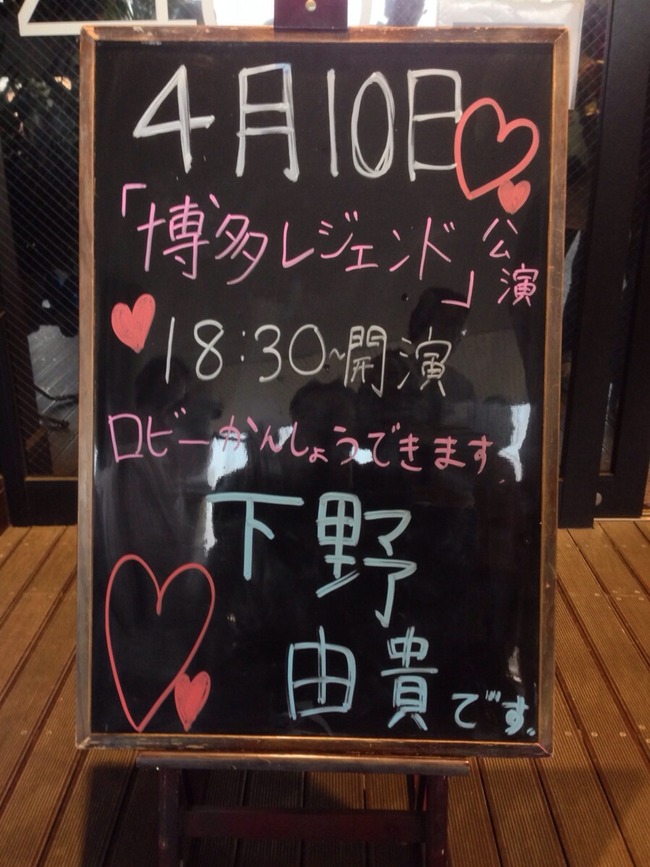 4月10日
「博多レジェンド」公演
18:30~開演
ロビーかんしょうできます
下野
由貴です。